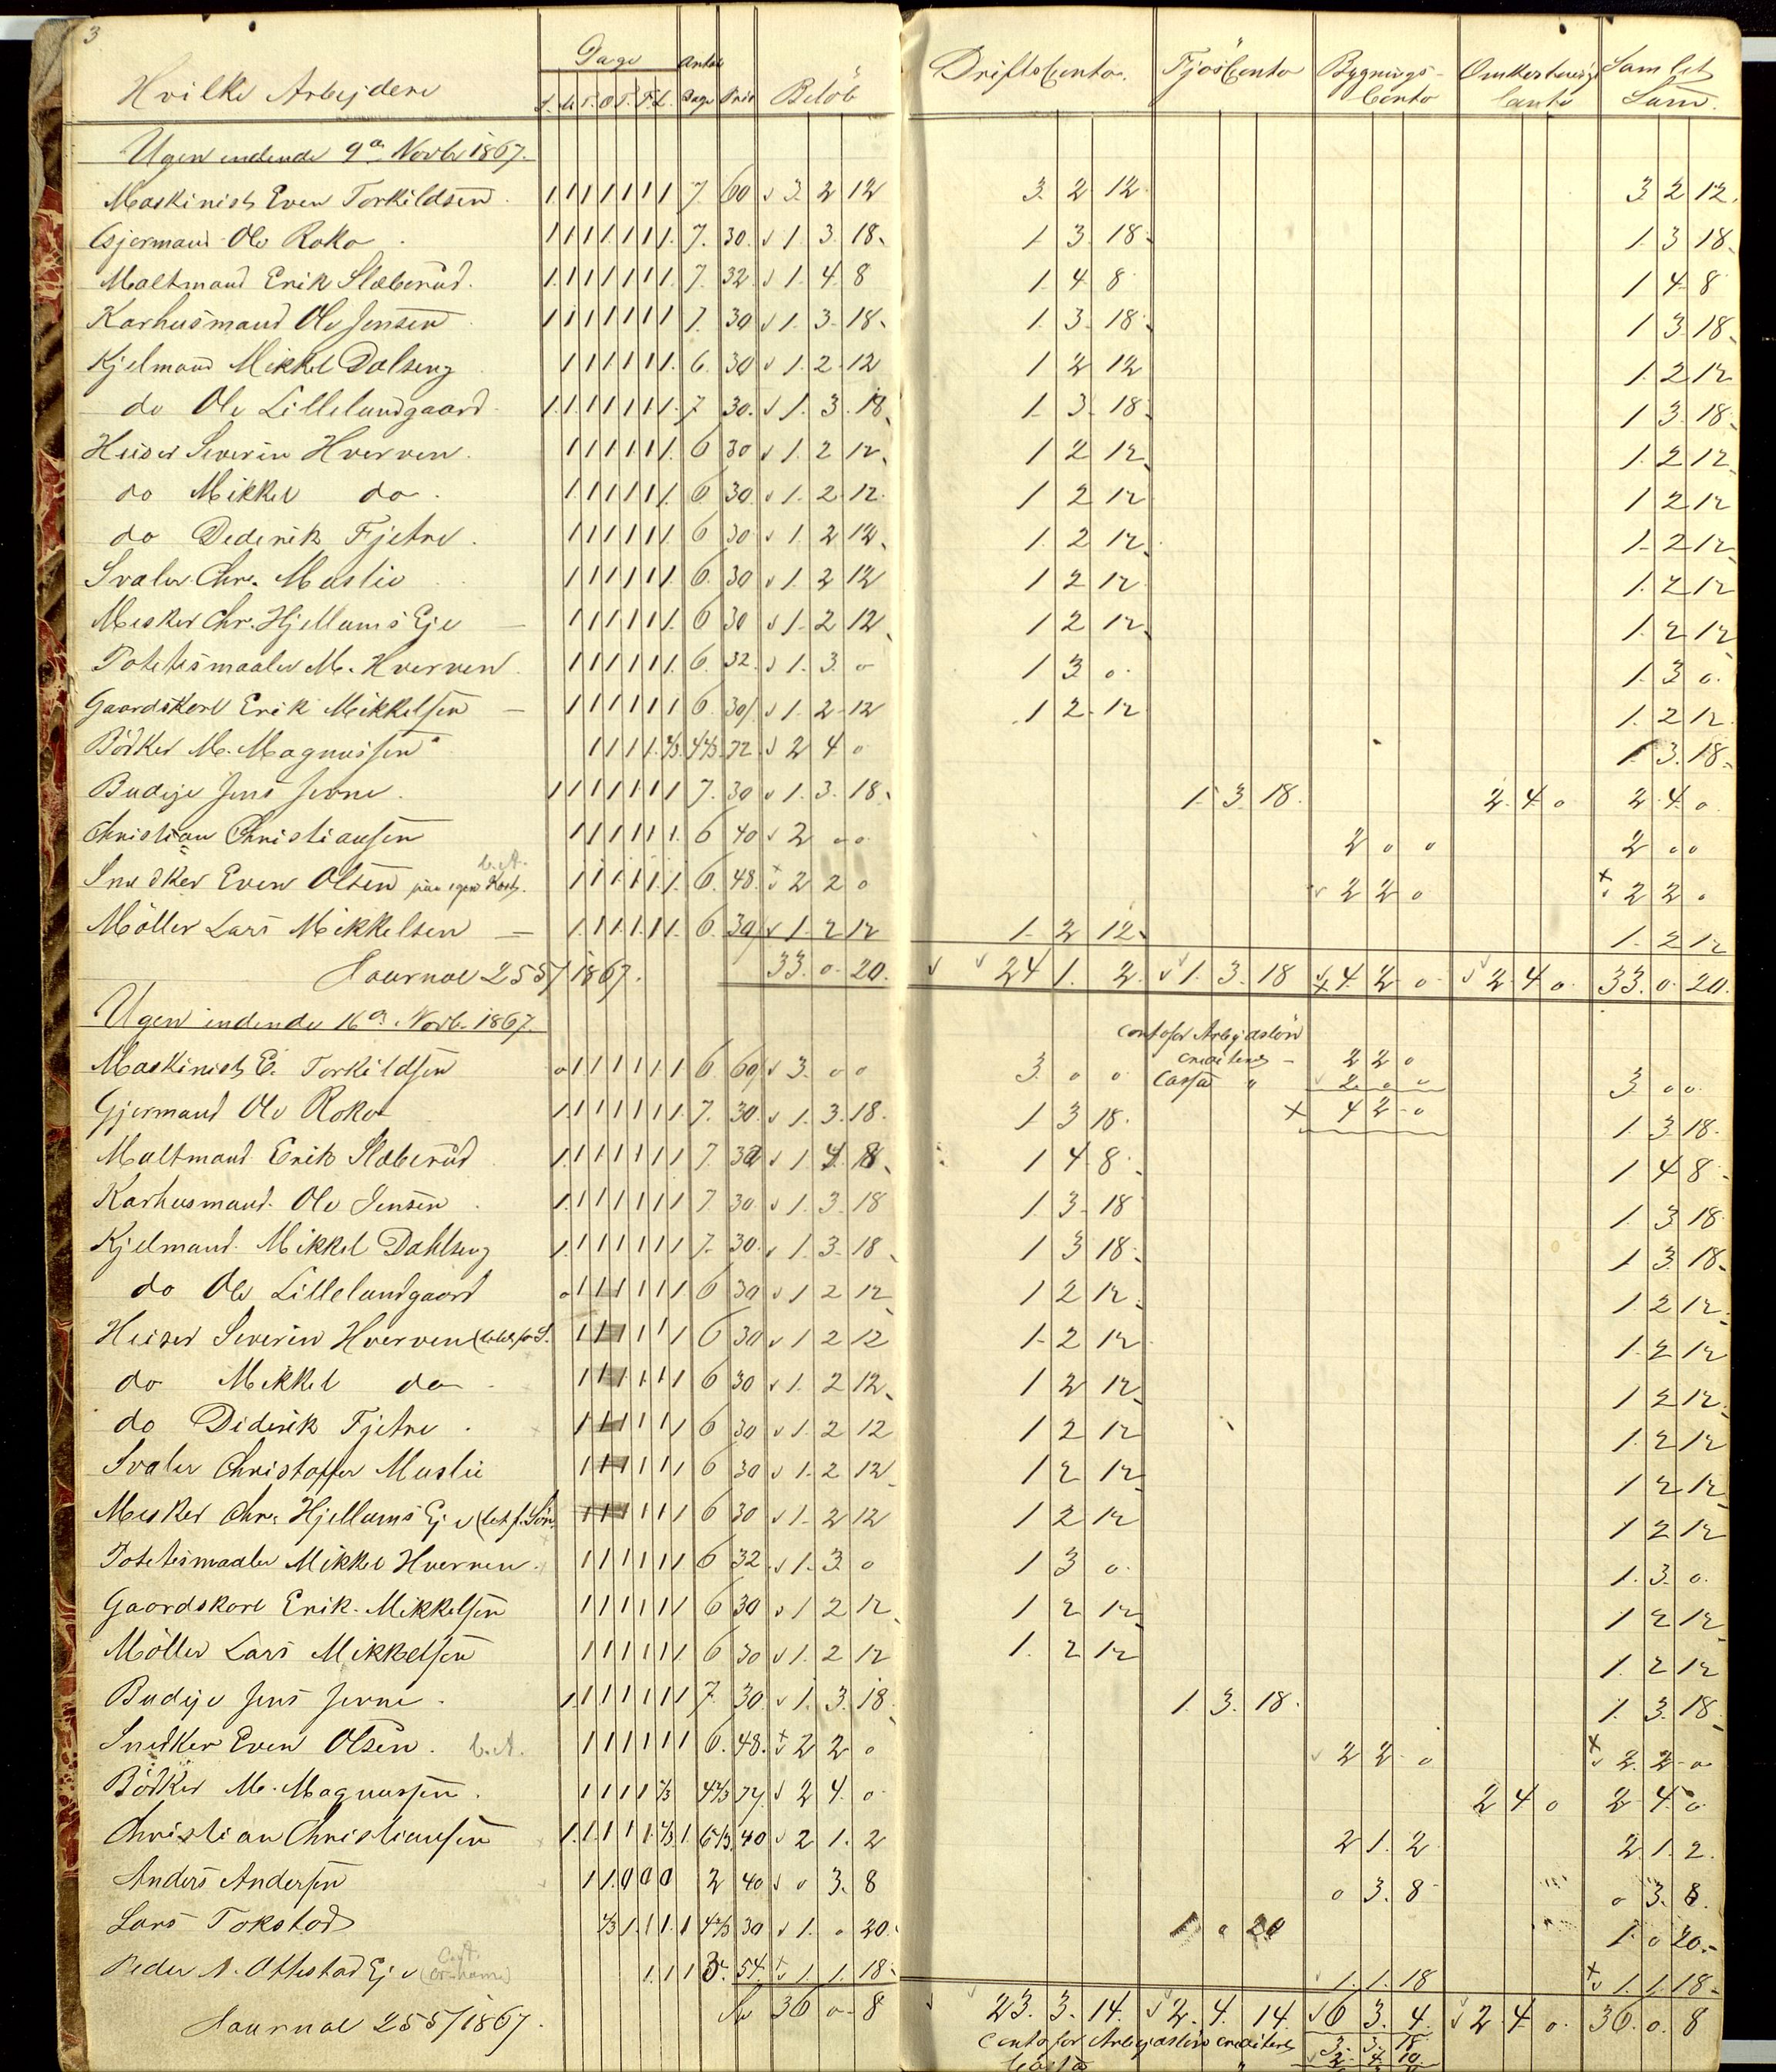 3
Hvilke Arbejdere Dage Antal Dage Pris Beløb Driftsconto. Fjøsconto Bygnings-Conto Conto Samlet Sum.
S. M. T. O. T. F. L.
Ugen endende 9de Novbr 1867.
Maskinist Even Torkildsen. 1 1 1 1 1 1 1 7. 60 3 2 12 3. 2 12 3 2 12.
Gjermand Ole Roko 1 1 1 1 1 1 1. 7. 30. 1. 3. 18. 1. 3. 18. 1. 3 18.
Maltmand Erik Slæberud. 1 1 1 1 1 1 1. 7. 32. 1. 4. 8 1. 4 8 1 4. 8
Karhusmand Ole Jensen 1 1 1 1 1 1 1 7. 30 1. 3. 18. 1. 3. 18. 1 3. 18.
Kjelmand Mikkel Dalseng 1 1 1 1 1 1. 6. 30 1. 2. 12 1 2 12 1. 2 12
do Ole Lillelundgaard 1 1 1 1 1 1 1. 7 30. 1. 3. 18. 1. 3. 18. 1 3. 18.
Heiser Severin Hverven. 1 1 1 1 1 1. 6 30 1. 2 12. 1 2 12. 1. 2 12.
do Mikkel do. 1 1 1 1 1 1. 6 30. 1. 2. 12. 1 2 12 1 2 12
do Dederik Fjetre. 1 1 1 1 1 1. 6 30 1. 2 12. 1. 2 12. 1. 2 12.
Svaler Chr. Muslie 1 1 1 1 1 1. 6. 30 1. 2 12 1 2 12 1. 2 12
Mesker Chr. Hjellums Eje 1 1 1 1 1 1. 6 30 1. 2 12. 1 2 12. 1. 2 12
Potetesmaaler M. Hverven. 1 1 1 1 1 1. 6. 32. 1. 3. 0 1 3 0. 1. 3 0.
Gaardskarl Erik Mikkelsen 1 1 1 1 1 1 6. 30 1. 2. 12 1 2. 12 1. 2 12.
Bödker M. Magnussen 1 1 1 1. 2/3. 4 2/3. 72. 2 4 0 1. 3. 18.
Budeje Jens Jevne. 1 1 1 1 1 1 1 7. 30 1. 3. 18. 1. 3 18. 2. 4. 0 2. 4. 0.
Christian Christiansen 1 1 1 1 1 1. 6 40 2 0 0 2 0 0 2 0 0
Snedker Even Olsen paa egen Kost. 1 1 1 1 1 1. 6. 48. 2 2 0 2 2 0 2 2 0
Möller Lars Mikkelsen 1 1 1 1 1 1. 6. 30 1. 2 12 1. 2 12. 1. 2 12
Journal 255/1867. 33. 0. 20. 24 1. 2. 1. 3. 18 4. 2. 0 2. 4 0. 33. 0. 20.
Ugen endende 16de Novb. 1867.
Conto for Arbejdsløn
crediteres 2 2 0
Cassa " 2. 0 0
4 2. 0
Maskinist E. Torkildsen 0 1 1 1 1 1 1 6. 60 3. 0 0 3. 0 0 3. 0 0.
Gjermand Ole Roko 1 1 1 1 1 1 1. 7. 30. 1. 3. 18. 1 3 18. 1. 3 18.
Maltmand Erik Slæberud 1 1 1 1 1 1 1 7. 32 1. 4. 8. 1 4 8. 1 4 8.
Karhusmand. Ole Jensen 1 1 1 1 1 1 1 7 30. 1. 3. 18 1. 3. 18 1. 3 18.
Kjelmand. Mikkel Dahlseng 1 1 1 1 1 1 1 7. 30. 1. 3. 18 1 3 18. 1 3. 18.
do Ole Lillelundgaard 0 1 1 1 1 1 1 6 30 1 2 12 1 2 12. 1 2 12.
Heiser Severin Hverven 1 1 1 1 1 1 6 30 1 2 12 1. 2 12 1. 2 12
do Mikkel do 1 1 1 1 1 1 6 30 1. 2 12. 1 2 12. 1 2 12.
do Diderik Fjetre. 1 1 1 1 1 1 6 30 1. 2 12 1 2 12 1. 2 12
Svaler Christoffer Muslie 1 1 1 1 1 1 6 30 1. 2 12 1 2 12. 1 2 12.
Mesker Chr. Hjellums Eje 1 1 1 1 1 1 6 30 1. 2 12 1 2 12 1 2 12
Potetesmaaler Mikkel Hverven. 1 1 1 1 1 1 6 32 1. 3. 0 1 3 0. 1. 3. 0.
Gaardskarl Erik. Mikkelsen 1 1 1 1 1 1 6 30 1 2 12. 1 2 12. 1 2 12.
Möller Lars Mikkelsen 1 1 1 1 1 1 6 30 1. 2 12 1. 2 12 1. 2 12
Budeje Jens Jevne. 1 1 1 1 1 1 1 7. 30. 1. 3. 18. 1. 3. 18. 1. 3. 18.
Snedker Even Olsen. 1 1 1 1 1 1 6. 48. 2 2 0 2 2. 0 2. 2. 0
Bödker M. Magnussen. 1 1 1 1 2/3 4 2/3 72 2 4. 0 2 4 0 2 4. 0
Christian Christiansen 1. 1. 1 1 1. 1/3 1 6 1/3. 40 2 1. 2 2 1. 2 2. 1. 2.
Anders Andersen 1 1. 0 0 0 2 40 0 3. 8 0 3. 8 0 3. 8.
Lars Tokstad 2/3 1. 1 1 1 4 2/3 30 1. 0 20. 1 0 20 1. 0 20.
Peder N. Ottestad Eje 1 1 1 3. 54. 1. 1. 18. 1. 1. 18 1. 1. 18.
Journal 255/1867. 36 0. 8 23. 3. 14. 2. 4. 14. 6 3. 4. 2 4. 0. 36. 0. 8
Conto for Arbejdsløn crediteres
Cassa